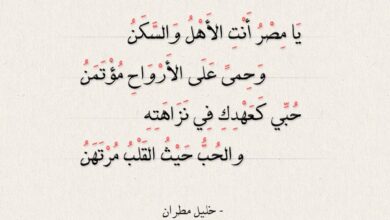 يَا مِصْرُ أَنْتِ الأَهْلُ وَالسَّكَنُ
وَحِمىً عَلَى الأَرْوَاحِ مُؤْتَمَنُ
حُبِّي كَعَهْدِكِ فِي نَزَاهَتِهِ
والحُبُّ حَيْثُ القَلْبُ مُرْتَهَنُ
- خليل مطران